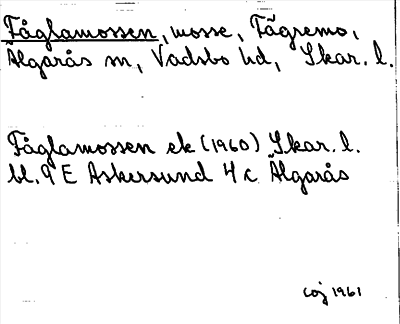 Fåglamossen, mosse, Fägremo,
Älgarås sn, Vadsbo hd, Skar. l.
Fåglamossen ek (1960) Skar. l.
bl. 9 E Askersund 4 c Älgarås
Coj 1961